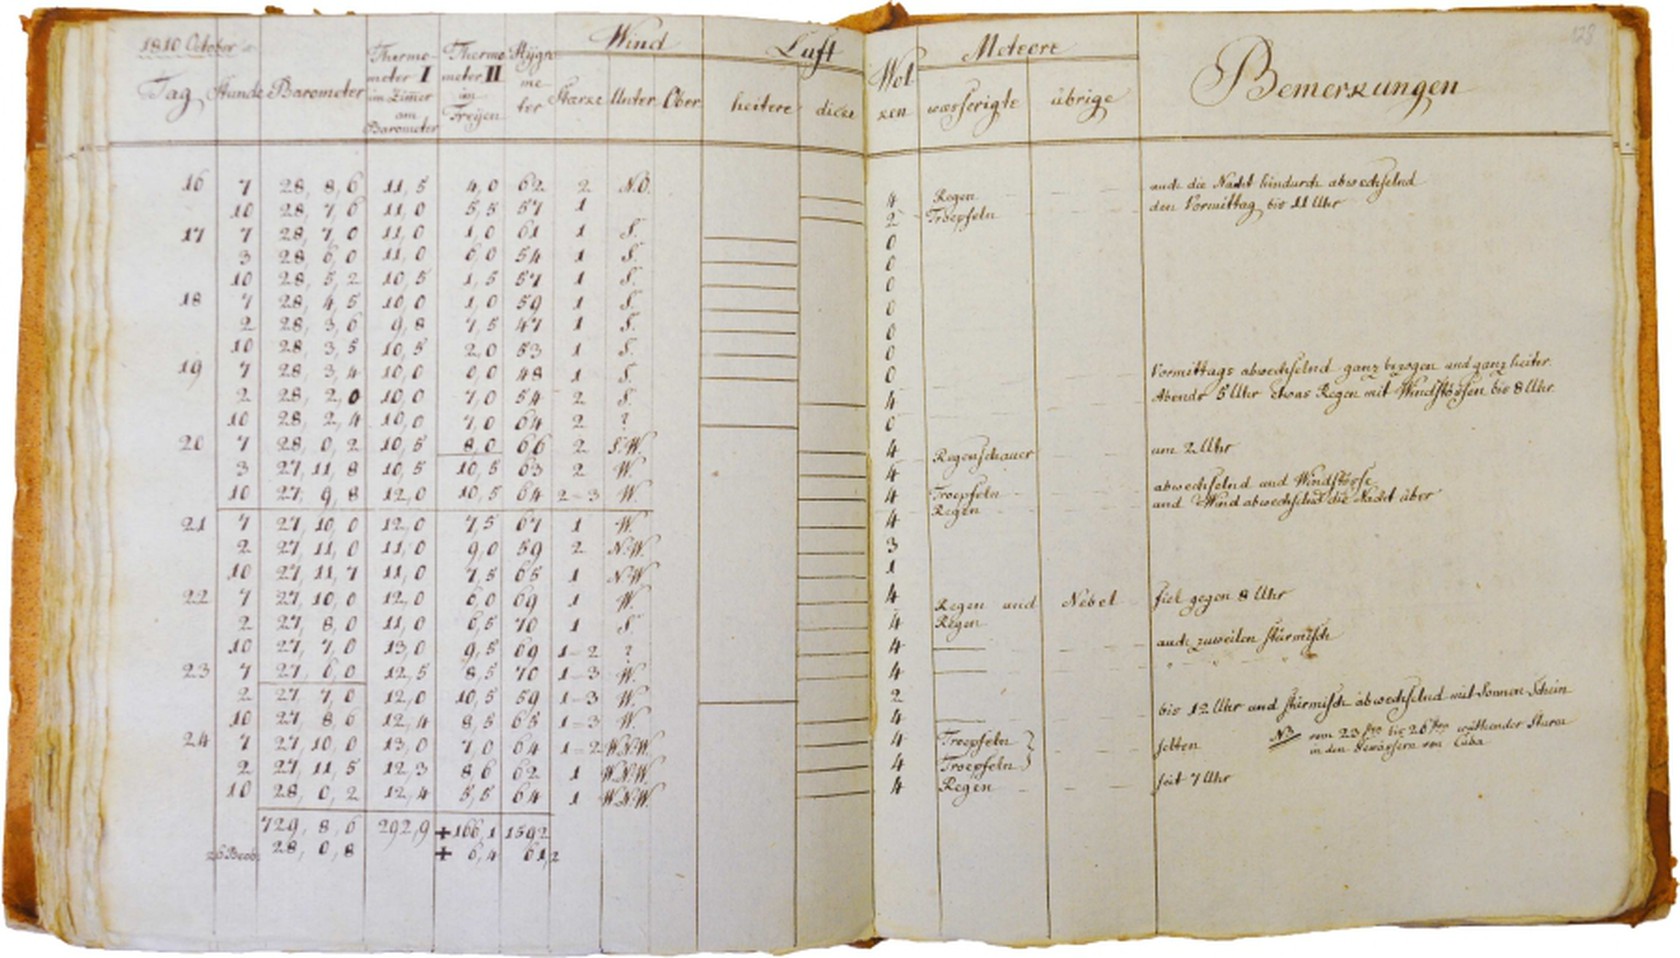 1810 October
Tag Stunde Barometer Thermometer I im Zimmer am Barometer Thermometer II im Freÿen Hÿgrometer Wind Stärke Unter Ober Luft heitere dicke Wolken Meteore wässerigte übrige Bemerkungen
128
16 7 28, 8, 6 11, 5 4, 0 62 2 N.O. 4 Regen auch die Nacht hindurch abwechselnd
10 28, 7, 6 11, 0 5, 5 57 1 2 Troepfeln den Vormittag bis 11 Uhr
17 7 28, 7, 0 11, 0 1, 0 61 1 S. 0
3 28, 6, 0 11, 0 6, 0 54 1 S. 0
10 28, 5, 2 10, 5 1, 5 57 1 S. 0
18 7 28, 4, 5 10, 0 1, 0 59 1 S. 0
2 28, 3, 6 9, 8 7, 5 47 1 S. 0
10 28, 3, 5 10, 5 2, 0 53 1 S. 0
19 7 28, 3, 4 10, 0 0, 0 48 1 S. 0 Vormittags abwechselnd ganz bezogen und ganz heiter.
2 28, 2, 0 10, 0 7, 0 54 2 S. 4 Abends 5 Uhr etwas Regen mit Windstössen bis 8 Uhr.
10 28, 2, 4 10, 0 7, 0 64 2 ? 0
20 7 28, 0, 2 10, 5 8, 0 66 2 S.W. 4 Regenschauer um 2 Uhr
3 27, 11, 8 10, 5 10, 5 63 2 W. 4 Troepfeln abwechselnd und Windstösse
10 27, 9, 8 12, 0 10, 5 64 2=3 W. 4 Regen und Wind abwechselnd die Nacht über
21 7 27, 10, 0 12, 0 7, 5 67 1 W. 4
2 27, 11, 0 11, 0 9, 0 59 2 N.W. 3
10 27, 11, 7 11, 0 7, 5 65 1 N.W. 1
22 7 27, 10, 0 12, 0 6, 0 69 1 W. 4 Regen und Nebel fiel gegen 8 Uhr
2 27, 8, 0 11, 0 6, 5 70 1 S. 4 Regen
10 27, 7, 0 13, 0 9, 5 69 1=2 ? 4 auch zuweilen stürmisch
23 7 27, 6, 0 12, 5 8, 5 70 1=3 W. 4
2 27, 7, 0 12, 0 10, 5 59 1=3 W. 2 bis 12 Uhr und stürmisch abwechselnd mit Sonnen Schein
10 27, 8, 6 12, 4 8, 5 65 1=3 W. 4
24 7 27, 10, 0 13, 0 7, 0 64 1=2 W.N.W. 4 Troepfeln selten NB vom 23 bis 26 wüthender Sturm
2 27, 11, 5 12, 3 8, 6 62 1 W.N.W. 4 Troepfeln in den Gewässern von Cuba
10 28, 0, 2 12, 4 5, 5 64 1 W.N.W. 4 Regen seit 7 Uhr
729, 8, 6 292, 9 +166, 1 1592
26 Beob. 28, 0, 8 + 6, 4 61, 2